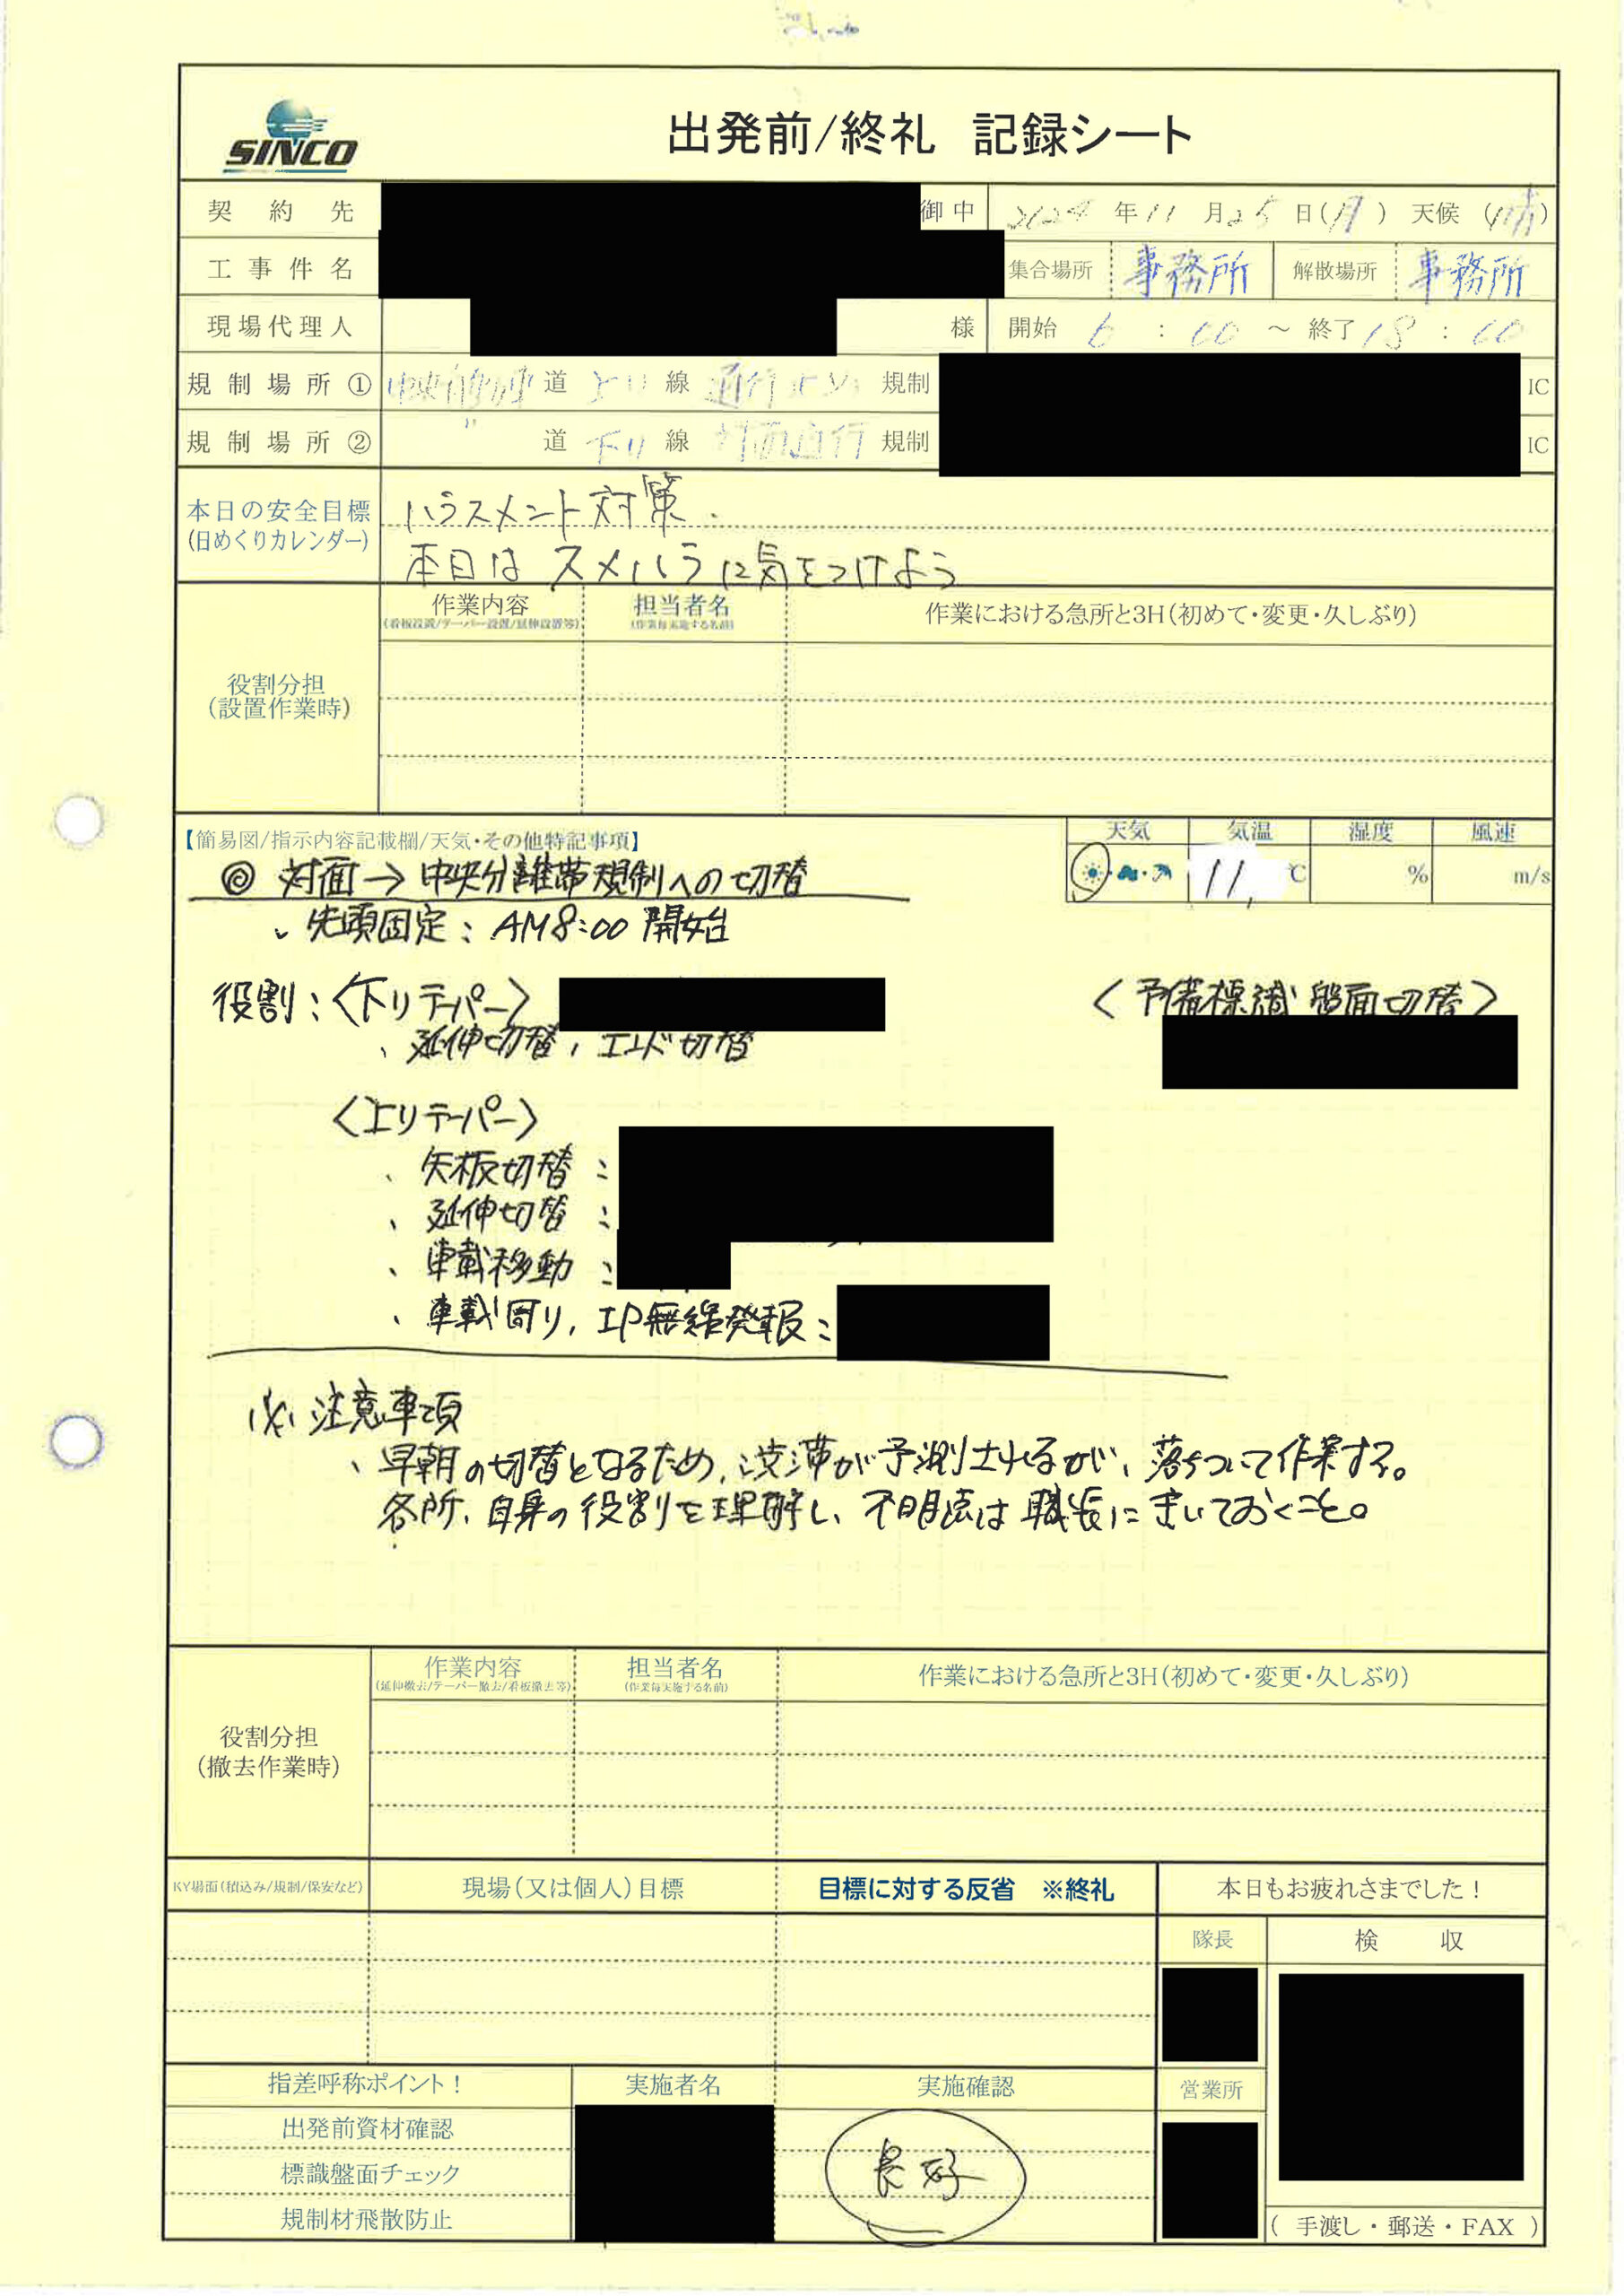 SINCO
出発前/終礼 記録シート
契約先 御中 2024年11月25日(月) 天候(晴)
工事件名 集合場所 事務所 解散場所 事務所
現場代理人 様 開始 6:00 ～ 終了 18:00
規制場所① 道 上り 線 規制 IC
規制場所② 〃 道 下り 線 対面通行 規制 IC
本日の安全目標 ハラスメント対策.
(日めくりカレンダー) 本日は スメハラに気をつけよう
作業内容 担当者名 作業における急所と3H(初めて・変更・久しぶり)
(看板設置/テーパー設置/延伸設置等) (作業毎実施する名前)
役割分担
(設置作業時)
【簡易図/指示内容記載欄/天気・その他特記事項】 天気 気温 湿度 風速
11 ℃ % m/s
◎ 対面→中央分離帯規制への切替
、先頭固定：AM8:00 開始
役割：〈下りテーパー〉 〈予備標識 盤面切替〉
、延伸切替，エンド切替
〈上りテーパー〉
、矢板切替：
、延伸切替：
、車載移動：
、車載周り，IP無線発報：
※ 注意事項
、早朝の切替となるため，渋滞が予測されるが、落ちついて作業する。
各所、自身の役割を理解し、不明点は職長にきいておくこと。
作業内容 担当者名 作業における急所と3H(初めて・変更・久しぶり)
(延伸撤去/テーパー撤去/看板撤去等) (作業毎実施する名前)
役割分担
(撤去作業時)
KY場面(積込み/規制/保安など) 現場(又は個人)目標 目標に対する反省 ※終礼 本日もお疲れさまでした！
隊長 検収
指差呼称ポイント！ 実施者名 実施確認 営業所
出発前資材確認
標識盤面チェック 良好
規制材飛散防止
(手渡し・郵送・FAX)